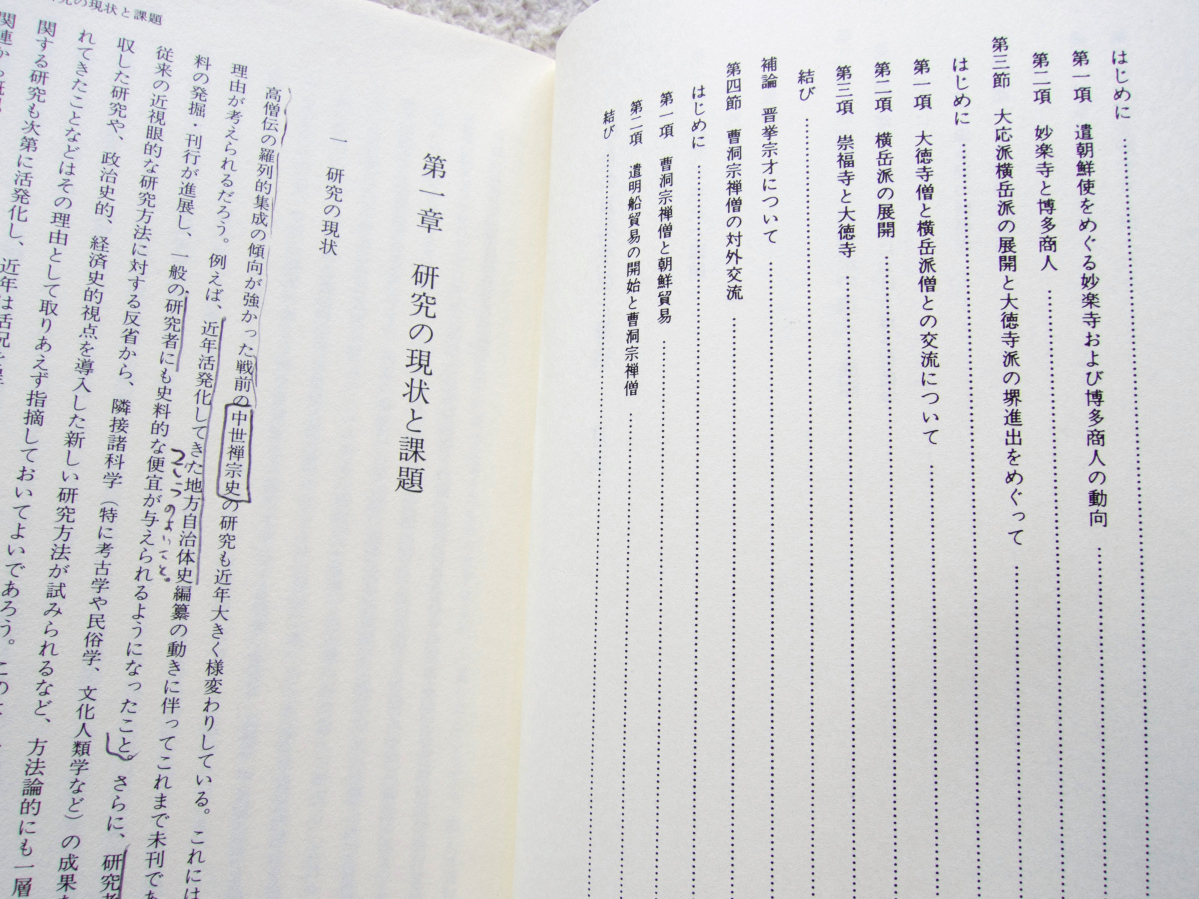 はじめに
第一項 遣朝鮮使をめぐる妙楽寺および博多商人の動向
第二項 妙楽寺と博多商人
第三節 大応派横岳派の展開と大徳寺派の堺進出をめぐって
はじめに
第一項 大徳寺僧と横岳派僧との交流について
第二項 横岳派の展開
第三項 崇福寺と大徳寺
結び
補論 晋挙宗才について
第四節 曹洞宗禅僧の対外交流
はじめに
第一項 曹洞宗禅僧と朝鮮貿易
第二項 遣明船貿易の開始と曹洞宗禅僧
結び
研究の現状と課題
第一章 研究の現状と課題
一 研究の現状
高僧伝の羅列的集成の傾向が強かった戦前の中世禅宗史の研究も近年大きく様変わりしている。これには
理由が考えられるだろう。例えば、近年活発化してきた地方自治体史編纂の動きに伴ってこれまで未刊であ
料の発掘・刊行が進展し、一般の研究者にも史料的な便宜が与えられるようになったこと。さらに、研究者
従来の近視眼的な研究方法に対する反省から、隣接諸科学（特に考古学や民俗学、文化人類学など）の成果
収した研究や、政治史的、経済史的視点を導入した新しい研究方法が試みられるなど、方法論的にも一層
れてきたことなどはその理由として取りあえず指摘しておいてよいであろう。この
関する研究も次第に活発化し、近年は活況を
関連から